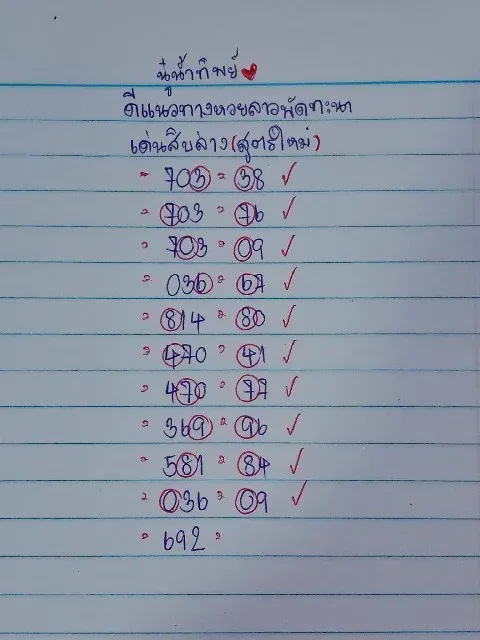 นู๋น้ำทิพย์
ดีแนวทางหวยลาวพัดทะนา
เด่นสิบล่าง(สูตรใหม่)
" 703 " 38 ✓
" 703 " 76 ✓
" 703 " 09 ✓
" 036 " 67 ✓
" 814 " 80 ✓
" 470 " 41 ✓
" 470 " 77 ✓
" 369 " 96 ✓
" 581 " 84 ✓
" 036 " 09 ✓
" 692 "